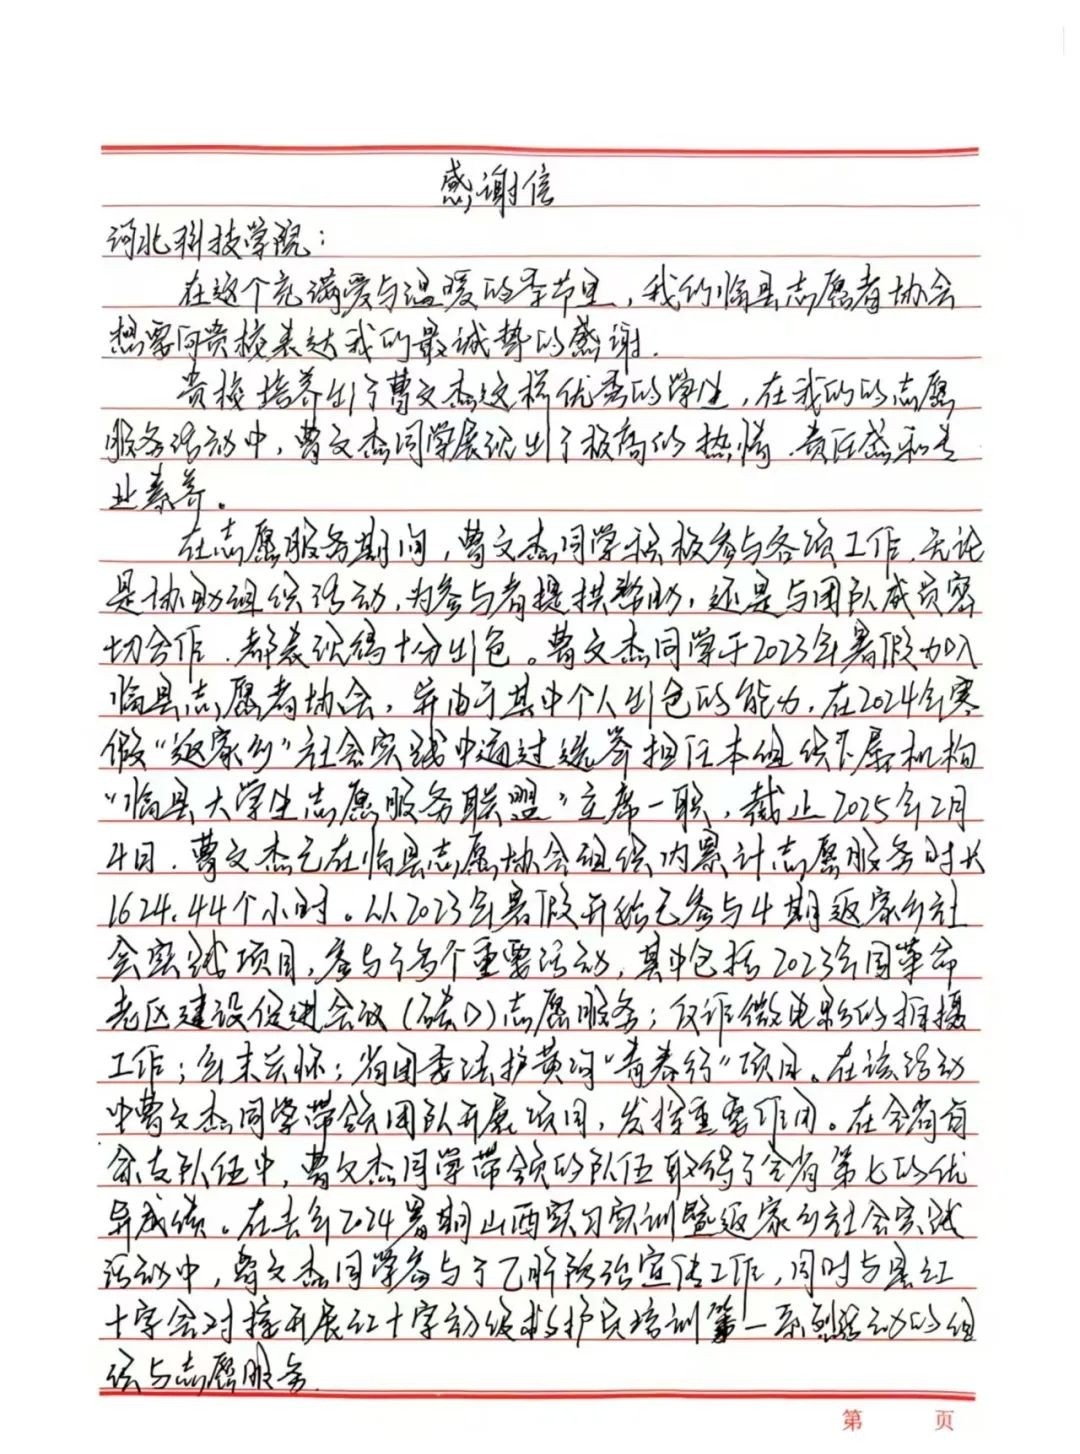 感谢信
河北科技学院：
在这个充满爱与温暖的季节里，我们临县志愿者协会
想要向贵校表达我们最诚挚的感谢.
贵校培养出了曹文杰这样优秀的学生，在我们的志愿
服务活动中，曹文杰同学展现出了极高的热情、责任感和专
业素养。
在志愿服务期间，曹文杰同学积极参与各项工作.无论
是协助组织活动，为参与者提供帮助，还是与团队成员密
切合作.都表现得十分出色。曹文杰同学于2023年暑假加入
临县志愿者协会，并由于其中个人出色的能力，在2024年寒
假“返家乡”社会实践中通过选举担任本组织下属机构
“临县大学生志愿服务联盟”主席一职，截止2025年2月
4日.曹文杰已在临县志愿协会组织内累计志愿服务时长
1624.44个小时。从2023年暑假开始已参与4期返家乡社
会实践项目，参与了多个重要活动，其中包括2023年国革命
老区建设促进会议(碛口)志愿服务；反诈微电影的拍摄
工作；年末关怀；省团委法护黄河“青春行”项目。在该活动
中曹文杰同学带领团队开展项目，发挥重要作用。在全省百
余支队伍中，曹文杰同学带领的队伍取得了全省第七的优
异成绩。在去年2024暑期山西实习实训暨返家乡社会实践
活动中，曹文杰同学参与了乙肝预防宣传工作，同时与县红
十字会对接开展红十字初级救护员培训第一系列活动的组
织与志愿服务.
第 页